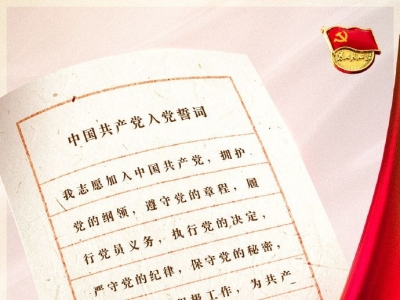 中国共产党入党誓词
我志愿加入中国共产党，拥护
党的纲领，遵守党的章程，履
行党员义务，执行党的决定，
严守党的纪律，保守党的秘密，
积极工作，为共产